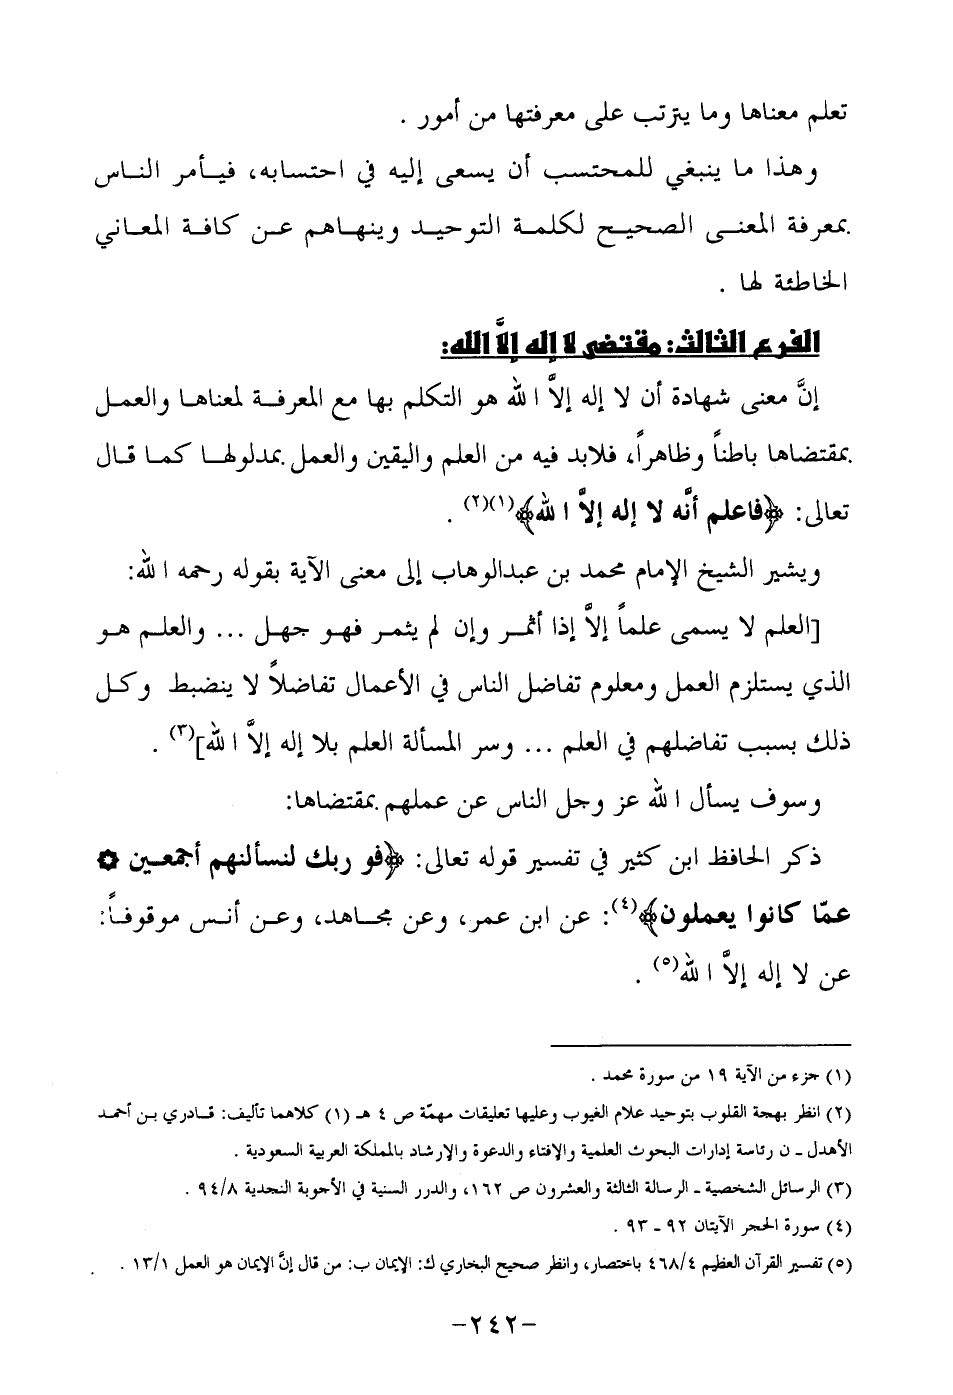 تعلم معناها وما يترتب على معرفتها من أمور .
وهذا ما ينبغي للمحتسب أن يسعى إليه في احتسابه، فيأمر الناس
بمعرفة المعنى الصحيح لكلمة التوحيد وينهاهم عن كافة المعاني
الخاطئة لها .
الفرع الثالث: مقتضى لا إله إلاَّ الله:
إنَّ معنى شهادة أن لا إله إلاَّ الله هو التكلم بها مع المعرفة لمعناها والعمل
بمقتضاها باطناً وظاهراً، فلابد فيه من العلم واليقين والعمل بمدلولها كما قال
تعالى: ﴿فاعلم أنَّه لا إله إلاَّ الله﴾(١)(٢) .
ويشير الشيخ الإمام محمد بن عبدالوهاب إلى معنى الآية بقوله رحمه الله:
[العلم لا يسمى علماً إلاَّ إذا أثمر وإن لم يثمر فهو جهل ... والعلم هو
الذي يستلزم العمل ومعلوم تفاضل الناس في الأعمال تفاضلاً لا ينضبط وكل
ذلك بسبب تفاضلهم في العلم ... وسر المسألة العلم بلا إله إلاَّ الله](٣) .
وسوف يسأل الله عز وجل الناس عن عملهم بمقتضاها:
ذكر الحافظ ابن كثير في تفسير قوله تعالى: ﴿فو ربك لنسألنهم أجمعين ۞
عمّا كانوا يعملون﴾(٤): عن ابن عمر، وعن مجاهد، وعن أنس موقوفاً:
عن لا إله إلاَّ الله(٥) .
(١) جزء من الآية ١٩ من سورة محمد .
(٢) انظر بهجة القلوب بتوحيد علام الغيوب وعليها تعليقات مهمّة ص ٤ هـ (١) كلاهما تأليف: قادري بن أحمد
الأهدل ـ ن رئاسة إدارات البحوث العلمية والإفتاء والدعوة والإرشاد بالمملكة العربية السعودية .
(٣) الرسائل الشخصية ـ الرسالة الثالثة والعشرون ص ١٦٢، والدرر السنية في الأجوبة النجدية ٩٤/٨ .
(٤) سورة الحجر الآيتان ٩٢ ـ ٩٣ .
(٥) تفسير القرآن العظيم ٤٦٨/٤ باختصار، وانظر صحيح البخاري ك: الإيمان ب: من قال إنَّ الإيمان هو العمل ١٣/١ .
-٢٤٢-